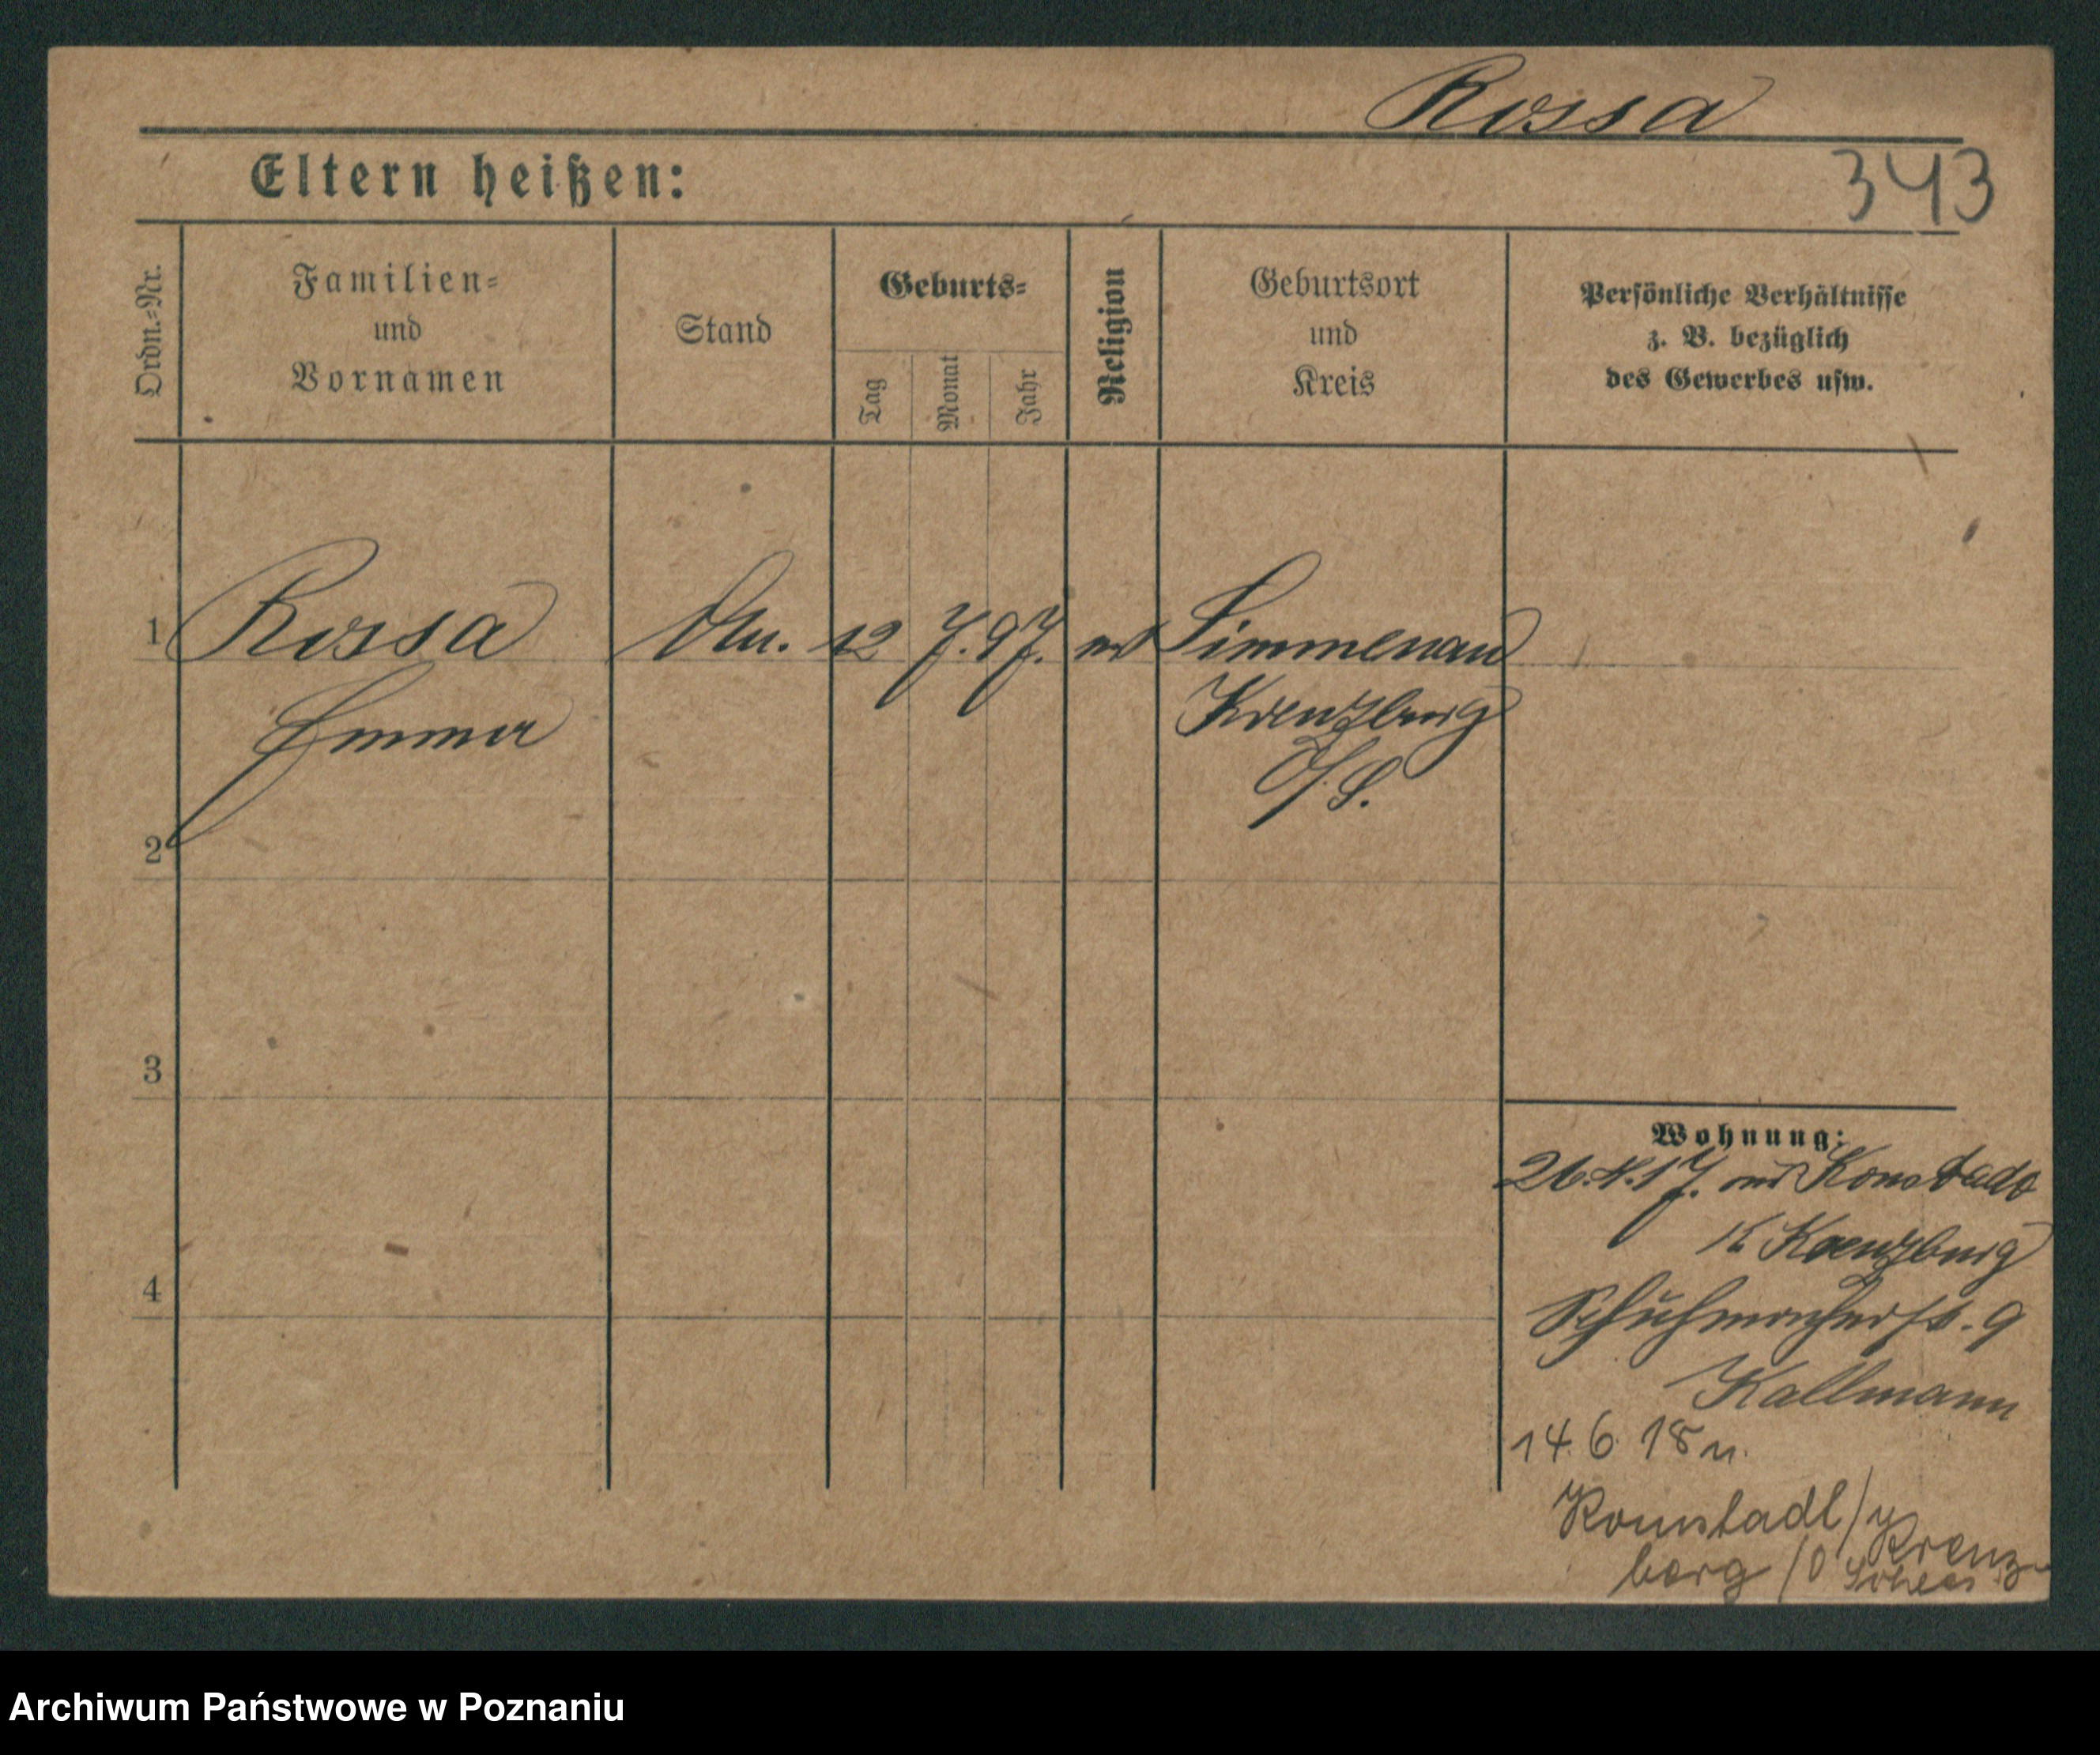 Rossa
343
Eltern heißen:
Ordn.-Nr.
Familien-
und
Vornamen
Stand
Geburts-
Tag
Monat
Jahr
Religion
Geburtsort
und
Kreis
Persönliche Verhältnisse
z. B. bezüglich
des Gewerbes usw.
1 Rossa 12 7. 97. Simmenau
Emma Kreuzburg
O/S.
2
3
4
Wohnung:
17. aus Konstadt
Kreuzburg
Schuhmacherst. 9
Kallmann
14. 6. 18 n.
Konstadt/ Kreuz-
berg /O Schles
Archiwum Państwowe w Poznaniu